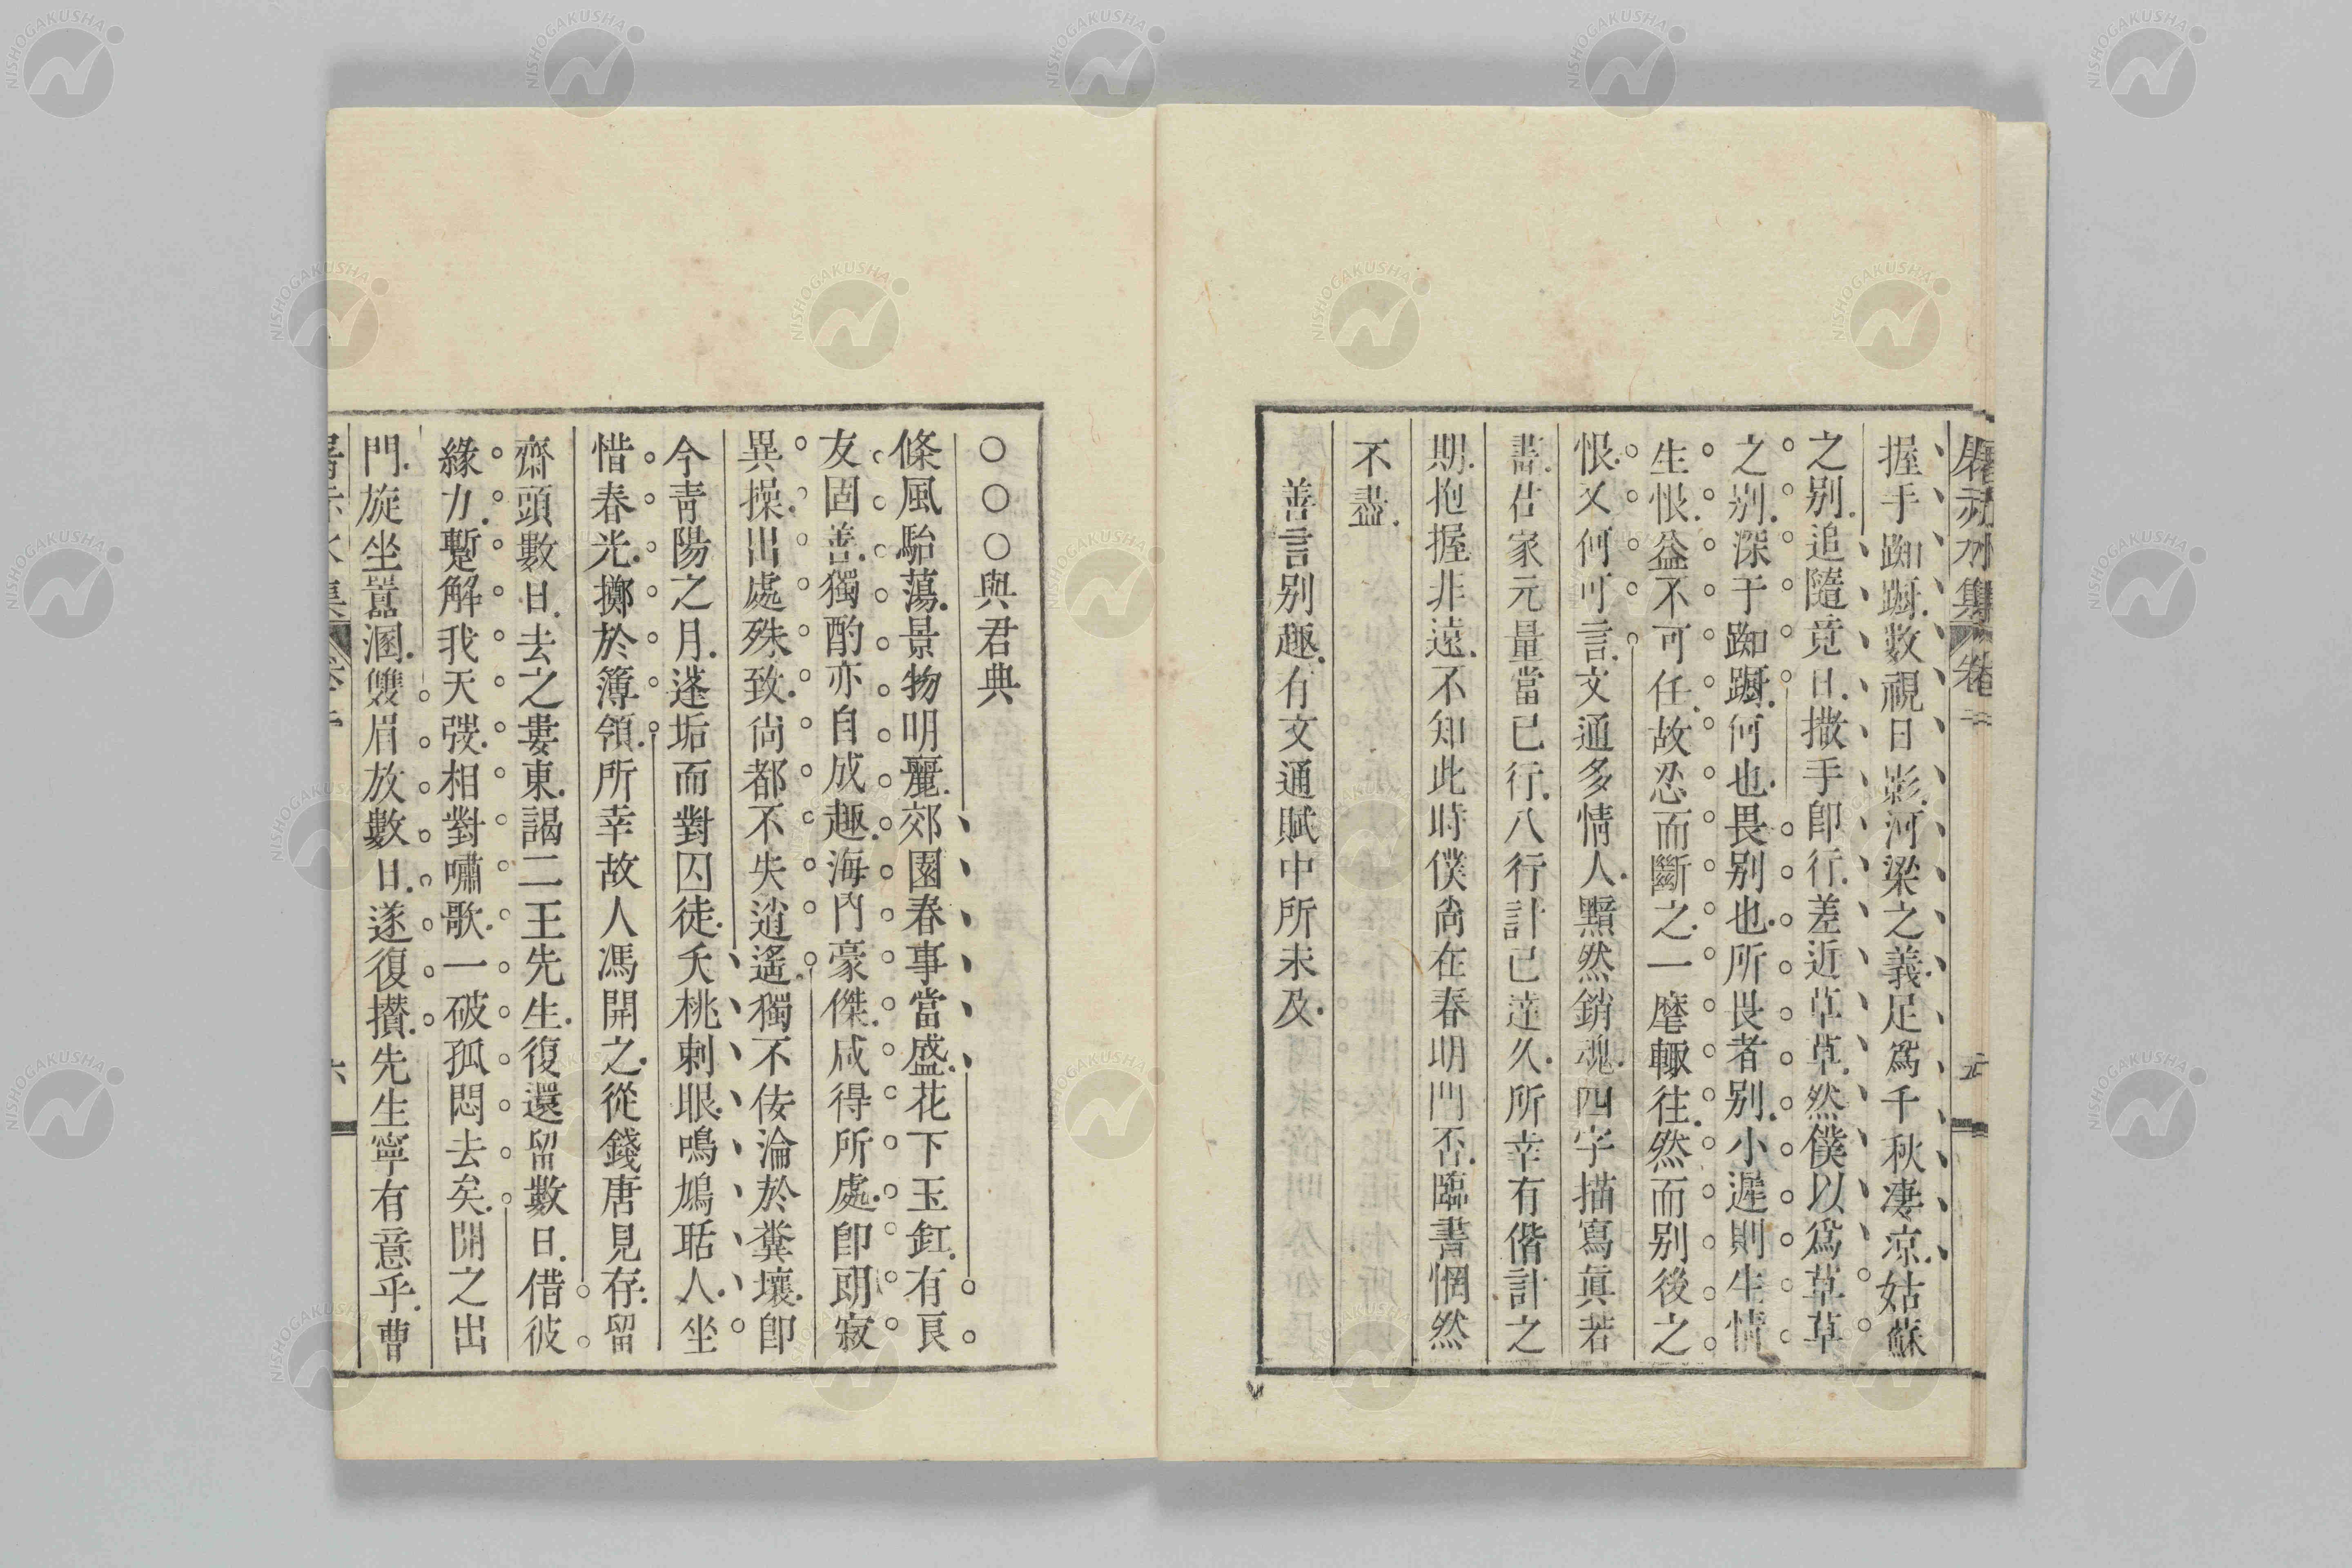 握手踟蹰數視日影河梁之義足爲千秋凄凉姑蘇
之别追隨竟日撒手卽行差近草草然僕以爲草草
之别深于踟蹰何也畏别也所畏者别小遲則生情
生恨益不可任故忍而斷之一麾輙往然而别後之
恨又何可言文通多情人黯然銷魂四字描寫眞若
畵估家元量當已行八行計已達久所幸有偕計之
期抱握非遠不知此時僕尙在春明門否臨書惘然
不盡
善言别趣有文通賦中所未及
○○○與君典
條風駘蕩景物明麗郊園春事當盛花下玉缸有良
友固善獨酌亦自成趣海內豪傑咸得所處卽朗寂
異操出處殊致尙都不失逍遙獨不佞淪於糞壤卽
今靑陽之月蓬垢而對囚徒夭桃刺眼鳴鳩聒人坐
惜春光擲於簿領所幸故人馮開之從錢唐見存留
齋頭數日去之婁東謁二王先生復還留數日借彼
緣力蹔解我天弢相對嘯歌一破孤悶去矣開之出
門旋坐囂溷雙眉放數日遂復攢先生寧有意乎曹
NISHOGAKUSHA